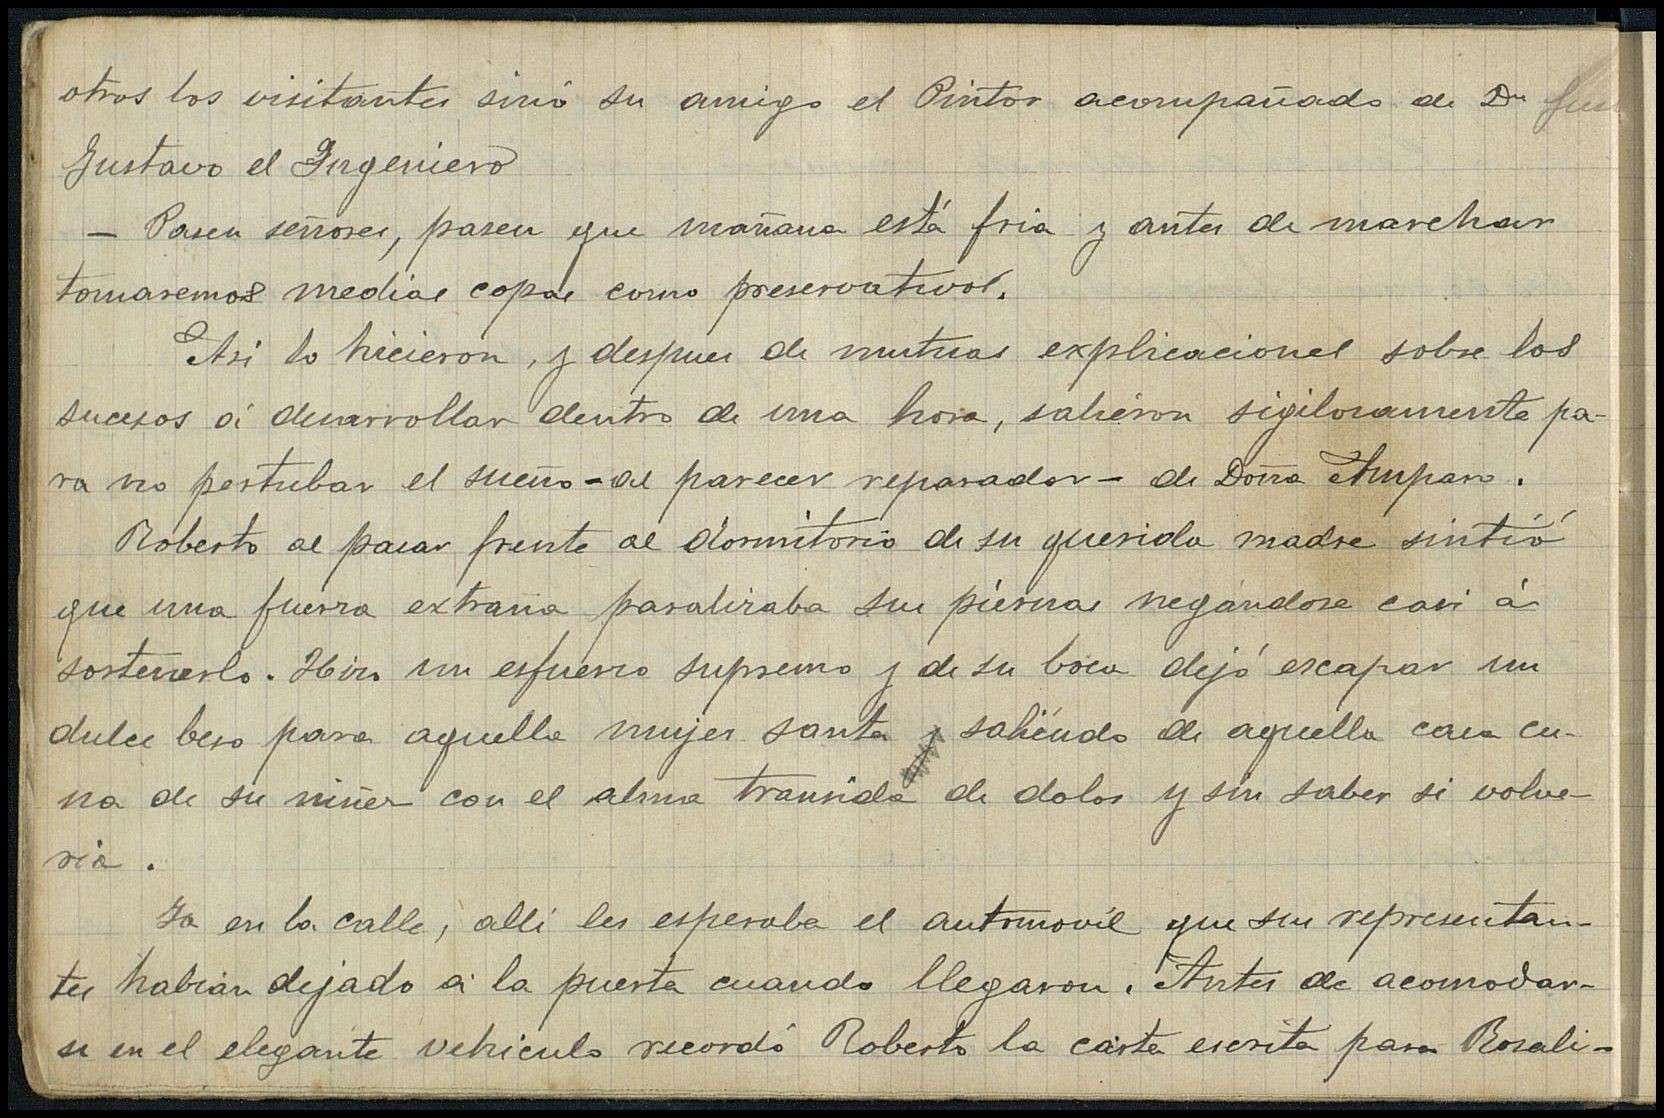 otros los visitantes sinó su amigo el Pintor acompañado de Dn
Gustavo el Ingeniero
— Pasen señores, pasen que mañana está fria y antes de marchar
tomaremos medias copas como preservativos.
Asi lo hicieron, y despues de mutuas explicaciones sobre los
sucesos á desarrollar dentro de una hora, salieron sigilosamente pa-
ra no pertubar el sueño - al parecer reparador - de Doña Amparo.
Roberto al pasar frente al dormitorio de su querida madre sintió
que una fuerza extraña paralizaba sus piernas negándose casi á
sostenerlo. Hizo un esfuerzo supremo y de su boca dejó escapar un
dulce beso para aquella mujer santa y saliendo de aquella casa cu-
na de su niñez con el alma transida de dolor y sin saber si volve-
ria.
Ya en la calle, alli les esperaba el automovil que sus representan-
tes habian dejado á la puerta cuando llegaron. Antes de acomodar-
se en el elegante vehiculo recordó Roberto la carta escrita para Rosali-